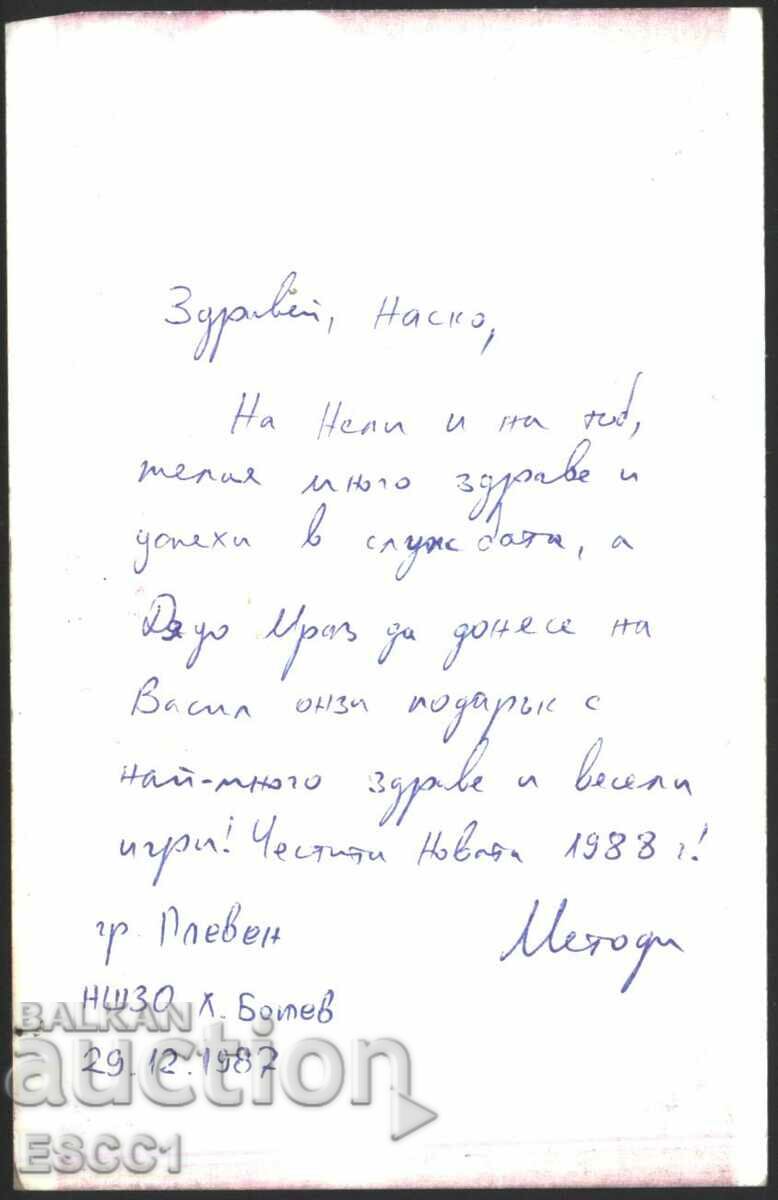 Здравей, Наско,
На Нели и на теб,
желая много здраве и
успехи в службата, а
Дядо Мраз да донесе на
Васил онзи подарък с
най-много здраве и весели
игри! Честити Новата 1988 г!
гр. Плевен Методи
НШЗО Х. Ботев
29.12.1987
BALKAN
auction
ESCC1